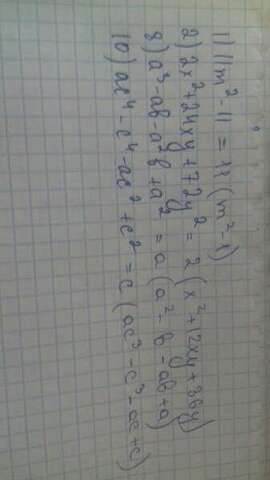 1) 11m²-11 = 11(m²-1)
2) 2x²+24xy+72y² = 2(x²+12xy+36y)
8) a³-ab-a²b+a² = a(a²-b-ab+a)
10) ac⁴-c⁴-ac²+c² = c(ac³-c³-ac+c)